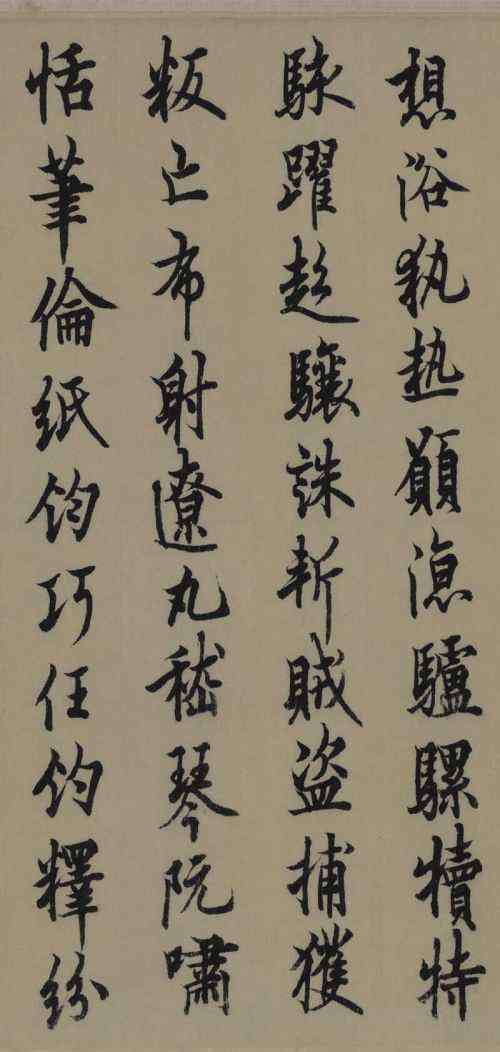 想浴執热願凉驢騾犢特
駭躍超驤誅斬賊盜捕獲
叛亡布射遼丸嵇琴阮嘯
恬筆倫紙鈞巧任釣釋紛